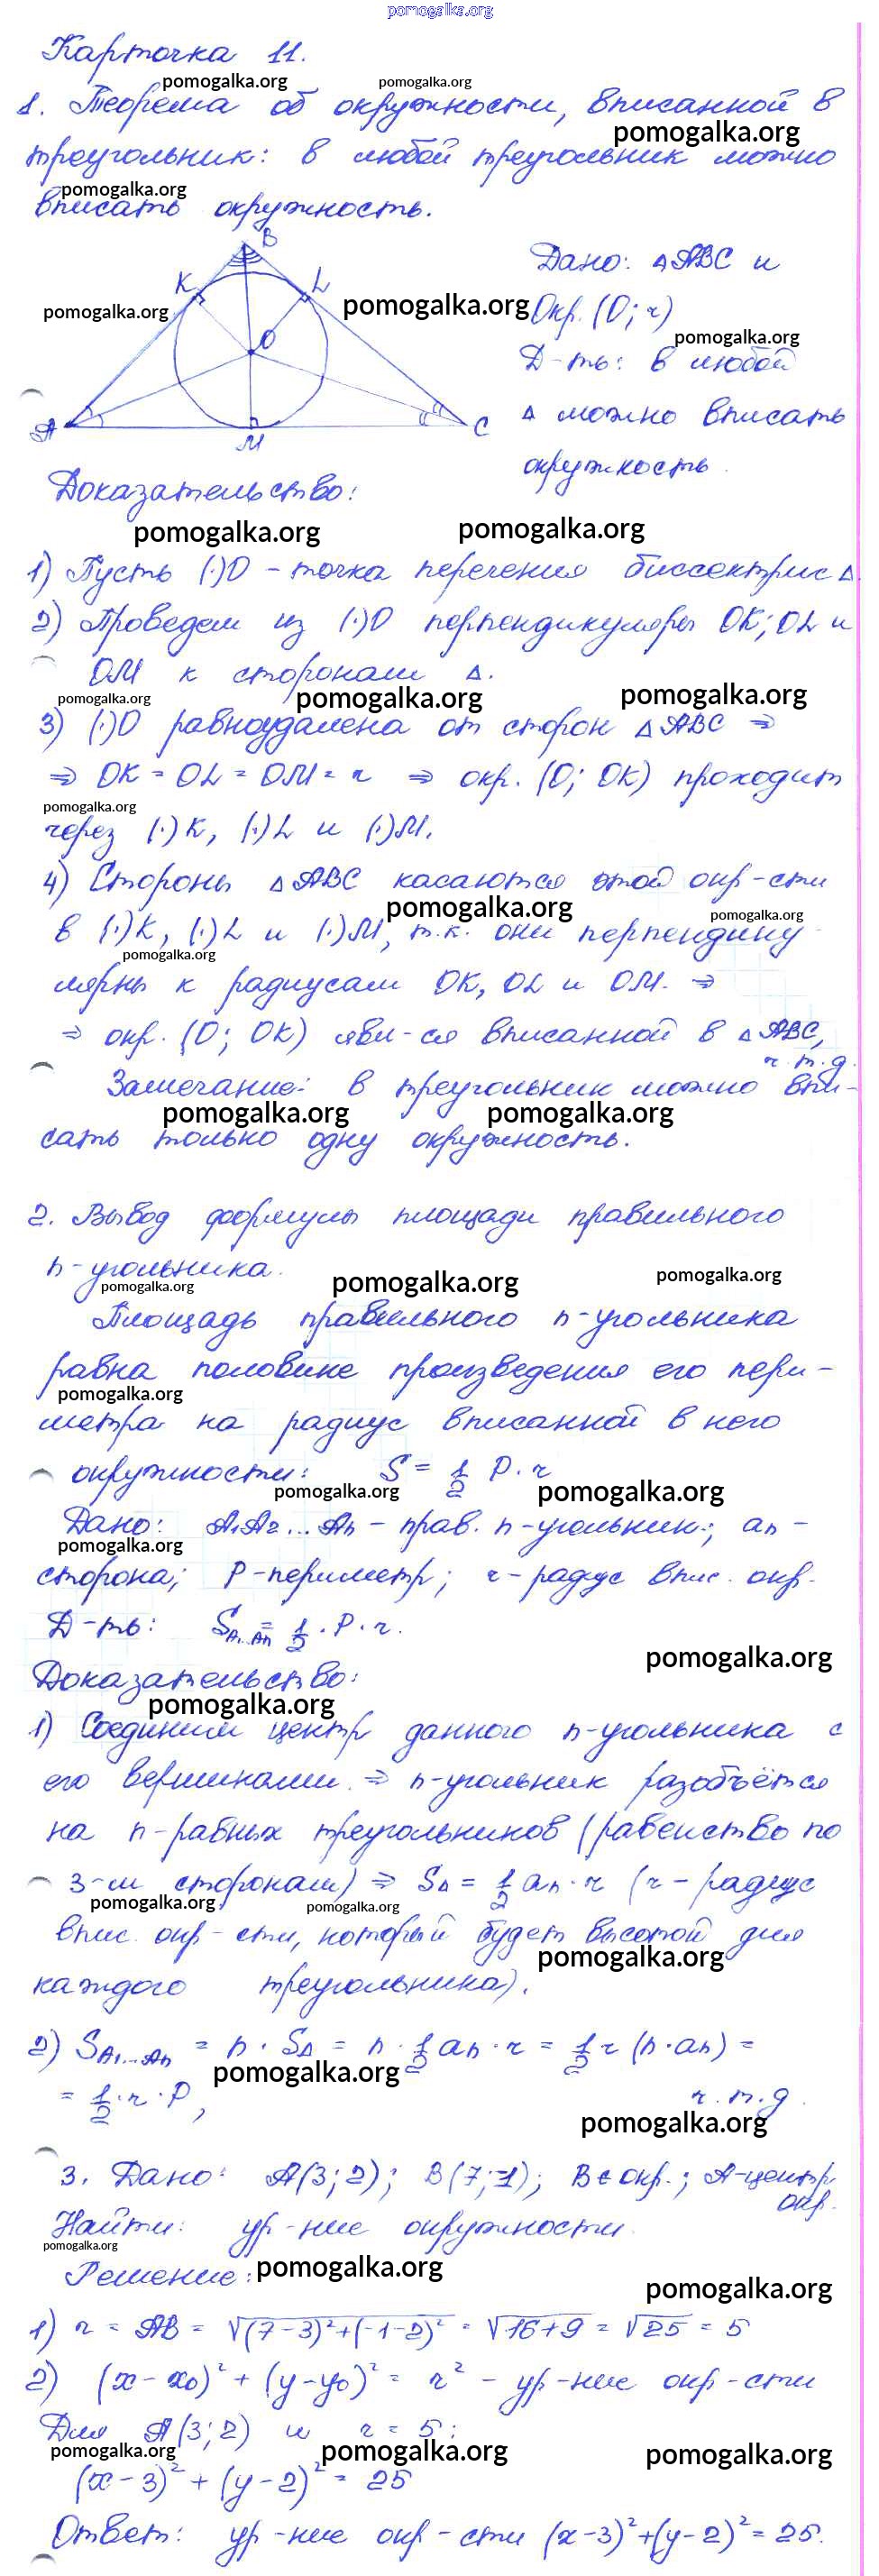 pomogalka.org
Карточка 11.
pomogalka.org pomogalka.org
1. Теорема об окружности, вписанной в
pomogalka.org
треугольник: в любой треугольник можно
pomogalka.org
вписать окружность.
B
K L
O
A M C
pomogalka.org pomogalka.org
Дано: △ABC и
Окр. (O; r)
pomogalka.org
Д-ть: в любой
△ можно вписать
окружность.
Доказательство:
pomogalka.org pomogalka.org
1) Пусть (·)O - точка перечения биссектрис △
2) Проведем из (·)O перпендикуляры OK; OL и
OM к сторонам △.
pomogalka.org pomogalka.org pomogalka.org
3) (·)O равноудалена от сторон △ABC ⇒
⇒ OK = OL = OM = r ⇒ окр. (O; OK) проходит
pomogalka.org
через (·)K, (·)L и (·)M.
4) Стороны △ABC касаются этой окр-сти
pomogalka.org pomogalka.org
в (·)K, (·)L и (·)M, т.к. они перпендику-
pomogalka.org
лярны к радиусам OK, OL и OM. ⇒
⇒ окр. (O; OK) явл-ся вписанной в △ABC,
ч.т.д.
Замечание: в треугольник можно впи-
pomogalka.org pomogalka.org
сать только одну окружность.
2. Вывод формулы площади правильного
n-угольника.
pomogalka.org pomogalka.org pomogalka.org
Площадь правильного n-угольника
равна половине произведения его пери-
pomogalka.org
метра на радиус вписанной в него
окружности: S = 1/2 P · r
pomogalka.org pomogalka.org
Дано: A1A2...An - прав. n-угольник; an -
pomogalka.org
сторона; P-периметр; r-радиус впис. окр.
Д-ть: SA1...An = 1/2 · P · r.
pomogalka.org
Доказательство:
pomogalka.org
1) Соединим центр данного n-угольника с
его вершинами. ⇒ n-угольник разобъётся
на n-равных треугольников (равенство по
3-м сторонам) ⇒ S△ = 1/2 an · r (r - радиус
pomogalka.org pomogalka.org
впис. окр-сти, который будет высотой для
pomogalka.org
каждого треугольника).
2) SA1...An = n · S△ = n · 1/2 an · r = 1/2 r (n · an) =
pomogalka.org
= 1/2 · r · P, ч.т.д.
pomogalka.org
3. Дано: A(3; 2); B(7; -1); B ∈ окр.; A-центр
окр.
Найти: ур-ние окружности
pomogalka.org
Решение:
pomogalka.org
pomogalka.org
1) r = AB = √(7-3)²+(-1-2)² = √16+9 = √25 = 5
2) (x - x0)² + (y - y0)² = r² - ур-ние окр-сти
Для A(3; 2) и r = 5:
pomogalka.org pomogalka.org pomogalka.org
(x - 3)² + (y - 2)² = 25
Ответ: ур-ние окр-сти (x-3)²+(y-2)² = 25.